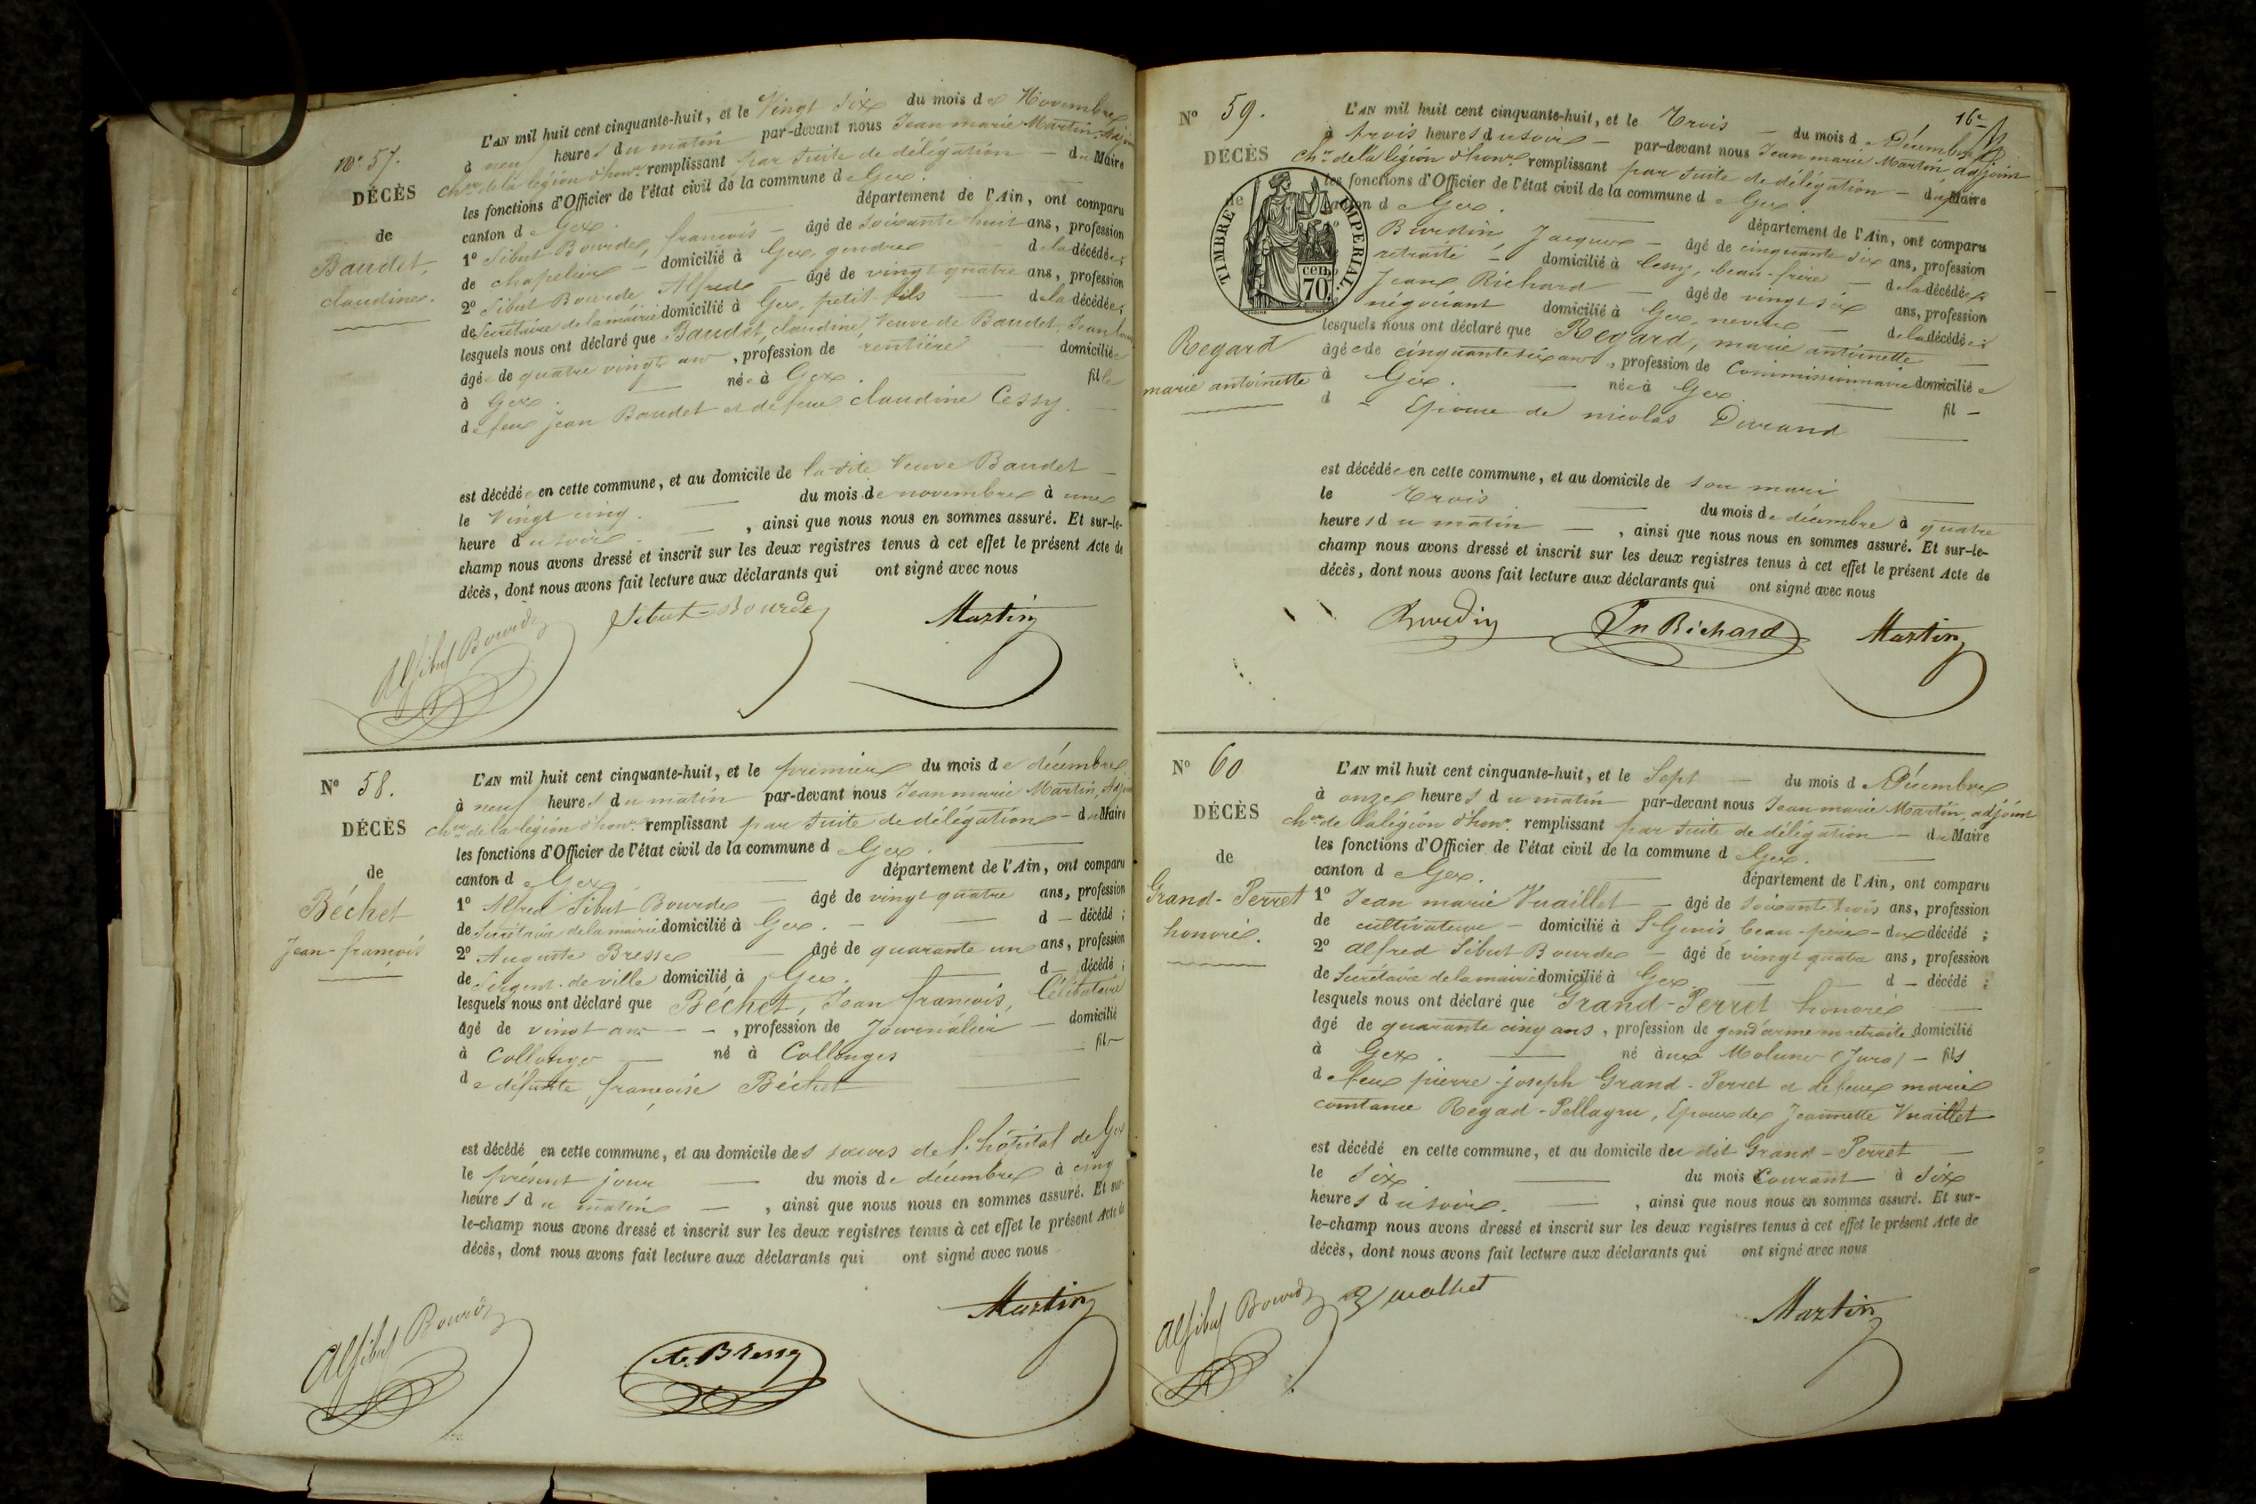 N° 57.
DÉCÈS
de
Baudet,
claudine.
L'AN mil huit cent cinquante-huit, et le Vingt six du mois de Novembre
à neuf heures du matin par-devant nous Jean marie Martin, Adjoint
chr. de la légion d'honr. remplissant par suite de délégation du Maire
les fonctions d'Officier de l'état civil de la commune de Gex.
canton de Gex. département de l'Ain, ont comparu
1° Sibut Bourde, françois âgé de soixante huit ans, profession
de chapelier domicilié à Gex, gendre de la décédée;
2° Sibut Bourde Alfred âgé de vingt quatre ans, profession
de Secrétaire de la mairie domicilié à Gex, petit-fils de la décédée;
lesquels nous ont déclaré que Baudet, claudine, Veuve de Baudet, Jean
âgée de quatre vingt ans, profession de rentière domiciliée
à Gex. née à Gex. fille
de feu Jean Baudet et de feue claudine Cessy.
est décédée en cette commune, et au domicile de la dite Veuve Baudet
le Vingt cinq. du mois de novembre à une
heure du soir. , ainsi que nous nous en sommes assuré. Et sur-le-
champ nous avons dressé et inscrit sur les deux registres tenus à cet effet le présent Acte de
décès, dont nous avons fait lecture aux déclarants qui ont signé avec nous
Al Sibut Bourde Sibut-Bourde Martin
N° 58.
DÉCÈS
de
Béchet
Jean-françois
L'AN mil huit cent cinquante-huit, et le premier du mois de décembre
à neuf heures du matin par-devant nous Jean marie Martin, Adjoint
chr. de la légion d'honr. remplissant par suite de délégation du Maire
les fonctions d'Officier de l'état civil de la commune d Gex.
canton de Gex département de l'Ain, ont comparu
1° Alfred Sibut Bourde âgé de vingt quatre ans, profession
de Secrétaire de la mairie domicilié à Gex. d décédé;
2° Auguste Bresse âgé de quarante un ans, profession
de Sergent de ville domicilié à Gex. d décédé;
lesquels nous ont déclaré que Béchet, Jean françois, Célibataire
âgé de vingt ans , profession de Journalier domicilié
à Collonges né à Collonges fils
de défunte françoise Béchet
est décédé en cette commune, et au domicile des soeurs de l'hôpital de Gex
le présent jour du mois de décembre à cinq
heures du matin , ainsi que nous nous en sommes assuré. Et sur-
le-champ nous avons dressé et inscrit sur les deux registres tenus à cet effet le présent Acte de
décès, dont nous avons fait lecture aux déclarants qui ont signé avec nous
Al Sibut Bourde A. Bresse Martin
16e
N° 59.
DÉCÈS
de
TIMBRE IMPERIAL.
70 cen.
Regard
marie antoinette
L'AN mil huit cent cinquante-huit, et le Trois du mois de Décembre
à trois heures du soir par-devant nous Jean marie Martin adjoint
chr. de la légion d'honr. remplissant par suite de délégation du Maire
les fonctions d'Officier de l'état civil de la commune de Gex
canton de Gex. département de l'Ain, ont comparu
1° Burdin, Jacques âgé de cinquante six ans, profession
retraité domicilié à Cessy, beau-frère de la décédée;
Jean Richard âgé de vingt six ans, profession
négociant domicilié à Gex, neveu de la décédée;
lesquels nous ont déclaré que Regard, marie antoinette
âgée de cinquante six ans, profession de Commissionnaire domiciliée
à Gex. née à Gex. fil
d Epouse de nicolas Durand
est décédée en cette commune, et au domicile de son mari
le Trois du mois de décembre à quatre
heures du matin , ainsi que nous nous en sommes assuré. Et sur-le-
champ nous avons dressé et inscrit sur les deux registres tenus à cet effet le présent Acte de
décès, dont nous avons fait lecture aux déclarants qui ont signé avec nous
Burdin Jn Richard Martin
N° 60
DÉCÈS
de
Grand-Perret
honoré.
L'AN mil huit cent cinquante-huit, et le Sept du mois de Décembre
à onze heures du matin par-devant nous Jean marie Martin, adjoint
chr. de la légion d'honr. remplissant par suite de délégation du Maire
les fonctions d'Officier de l'état civil de la commune d Gex.
canton de Gex. département de l'Ain, ont comparu
1° Jean marie Vuaillet âgé de soixante trois ans, profession
de cultivateur domicilié à St Genis beau-père du décédé;
2° Alfred Sibut Bourde âgé de vingt quatre ans, profession
de Secrétaire de la mairie domicilié à Gex. d décédé;
lesquels nous ont déclaré que Grand-Perret honoré
âgé de quarante cinq ans, profession de gendarme en retraite domicilié
à Gex. né aux Molunes (Jura) fils
de feu pierre joseph Grand-Perret et de feue marie
constance Regad-Pellagru, Epoux de Jeannette Vuaillet
est décédé en cette commune, et au domicile du dit Grand-Perret
le Six du mois Courant à Six
heures du soir. , ainsi que nous nous en sommes assuré. Et sur-
le-champ nous avons dressé et inscrit sur les deux registres tenus à cet effet le présent Acte de
décès, dont nous avons fait lecture aux déclarants qui ont signé avec nous
Al Sibut Bourde Martin